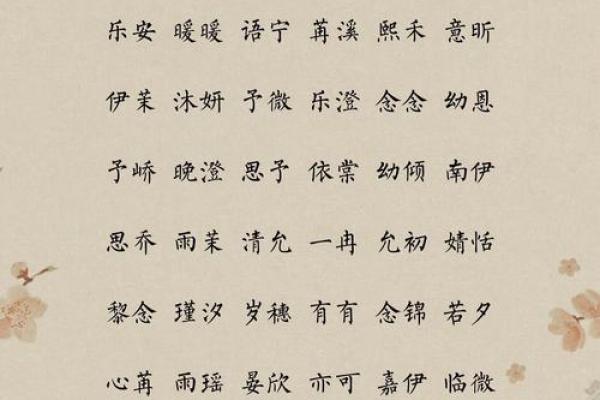 乐安 暖暖 语宁 苒溪 熙禾 意昕
伊茉 沐妍 予微 乐澄 念念 幼恩
予峤 晚澄 思予 依棠 幼倾 南伊
思乔 雨茉 清允 一冉 允初 婧恬
黎念 瑾汐 岁穗 有有 念锦 若夕
心苒 雨瑶 晏欣 亦可 嘉伊 临微